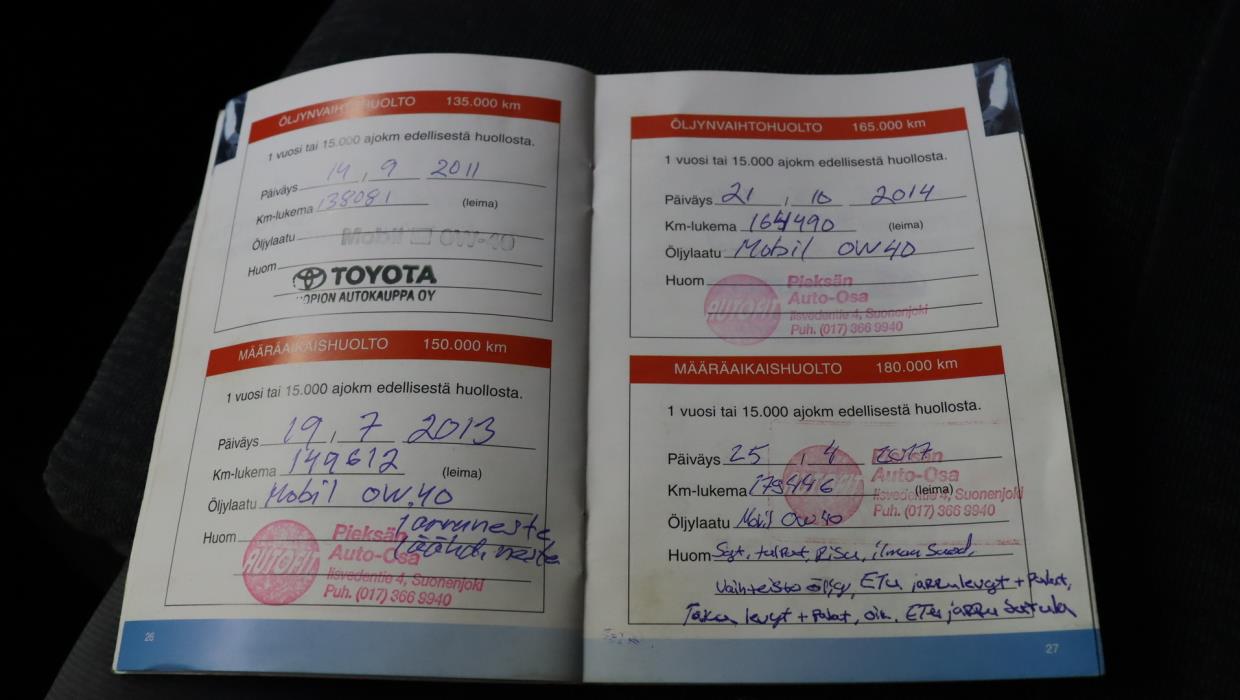 ÖLJYNVAIHTOHUOLTO 135.000 km
1 vuosi tai 15.000 ajokm edellisestä huollosta.
Päiväys 14 , 9 2011
Km-lukema 138081 (leima)
Öljylaatu Mobil 0W-40
Huom
TOYOTA
OPION AUTOKAUPPA OY
MÄÄRÄAIKAISHUOLTO 150.000 km
1 vuosi tai 15.000 ajokm edellisestä huollosta.
Päiväys 19 , 7 2013
Km-lukema 149612 (leima)
Öljylaatu Mobil 0W.40
Huom jarruneste
jäähd. neste
AUTOFIT
Pieksän
Auto-Osa
Iisvedentie 4, Suonenjoki
Puh. (017) 366 9940
26
ÖLJYNVAIHTOHUOLTO 165.000 km
1 vuosi tai 15.000 ajokm edellisestä huollosta.
Päiväys 21 , 10 2014
Km-lukema 164490 (leima)
Öljylaatu Mobil 0W40
Huom
AUTOFIT
Pieksän
Auto-Osa
Iisvedentie 4, Suonenjoki
Puh. (017) 366 9940
MÄÄRÄAIKAISHUOLTO 180.000 km
1 vuosi tai 15.000 ajokm edellisestä huollosta.
Päiväys 25 , 4 2017
Km-lukema 179446 (leima)
Öljylaatu Mobil 0W40
AUTOFIT
Pieksän
Auto-Osa
Iisvedentie 4, Suonenjoki
Puh. (017) 366 9940
Huom Syt. tulpat, ilman suod,
Vaihteisto öljy, ETU jarrulevyt + Palat,
Taka levyt + Palat, oik. ETU jarru Satula
27